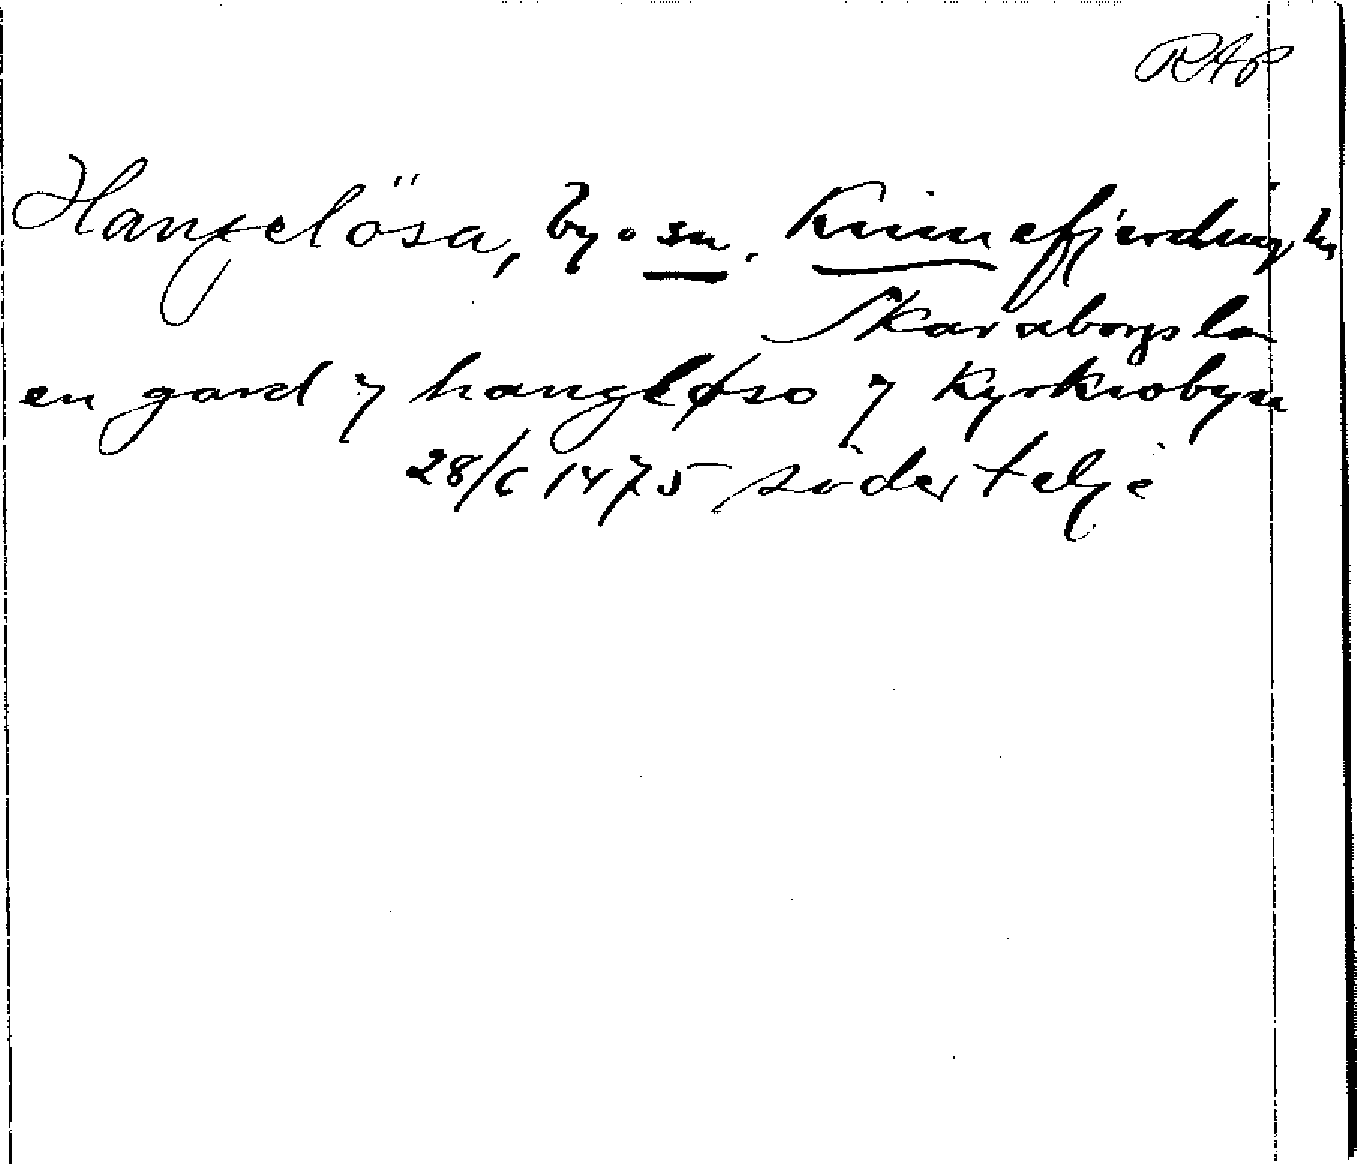 RAP
Hangelösa, by o sn. Kinnefjerding hd
Skaraborgs län
en gard j hangløso j Kyrkiobyn
28/6 1475 södertelje